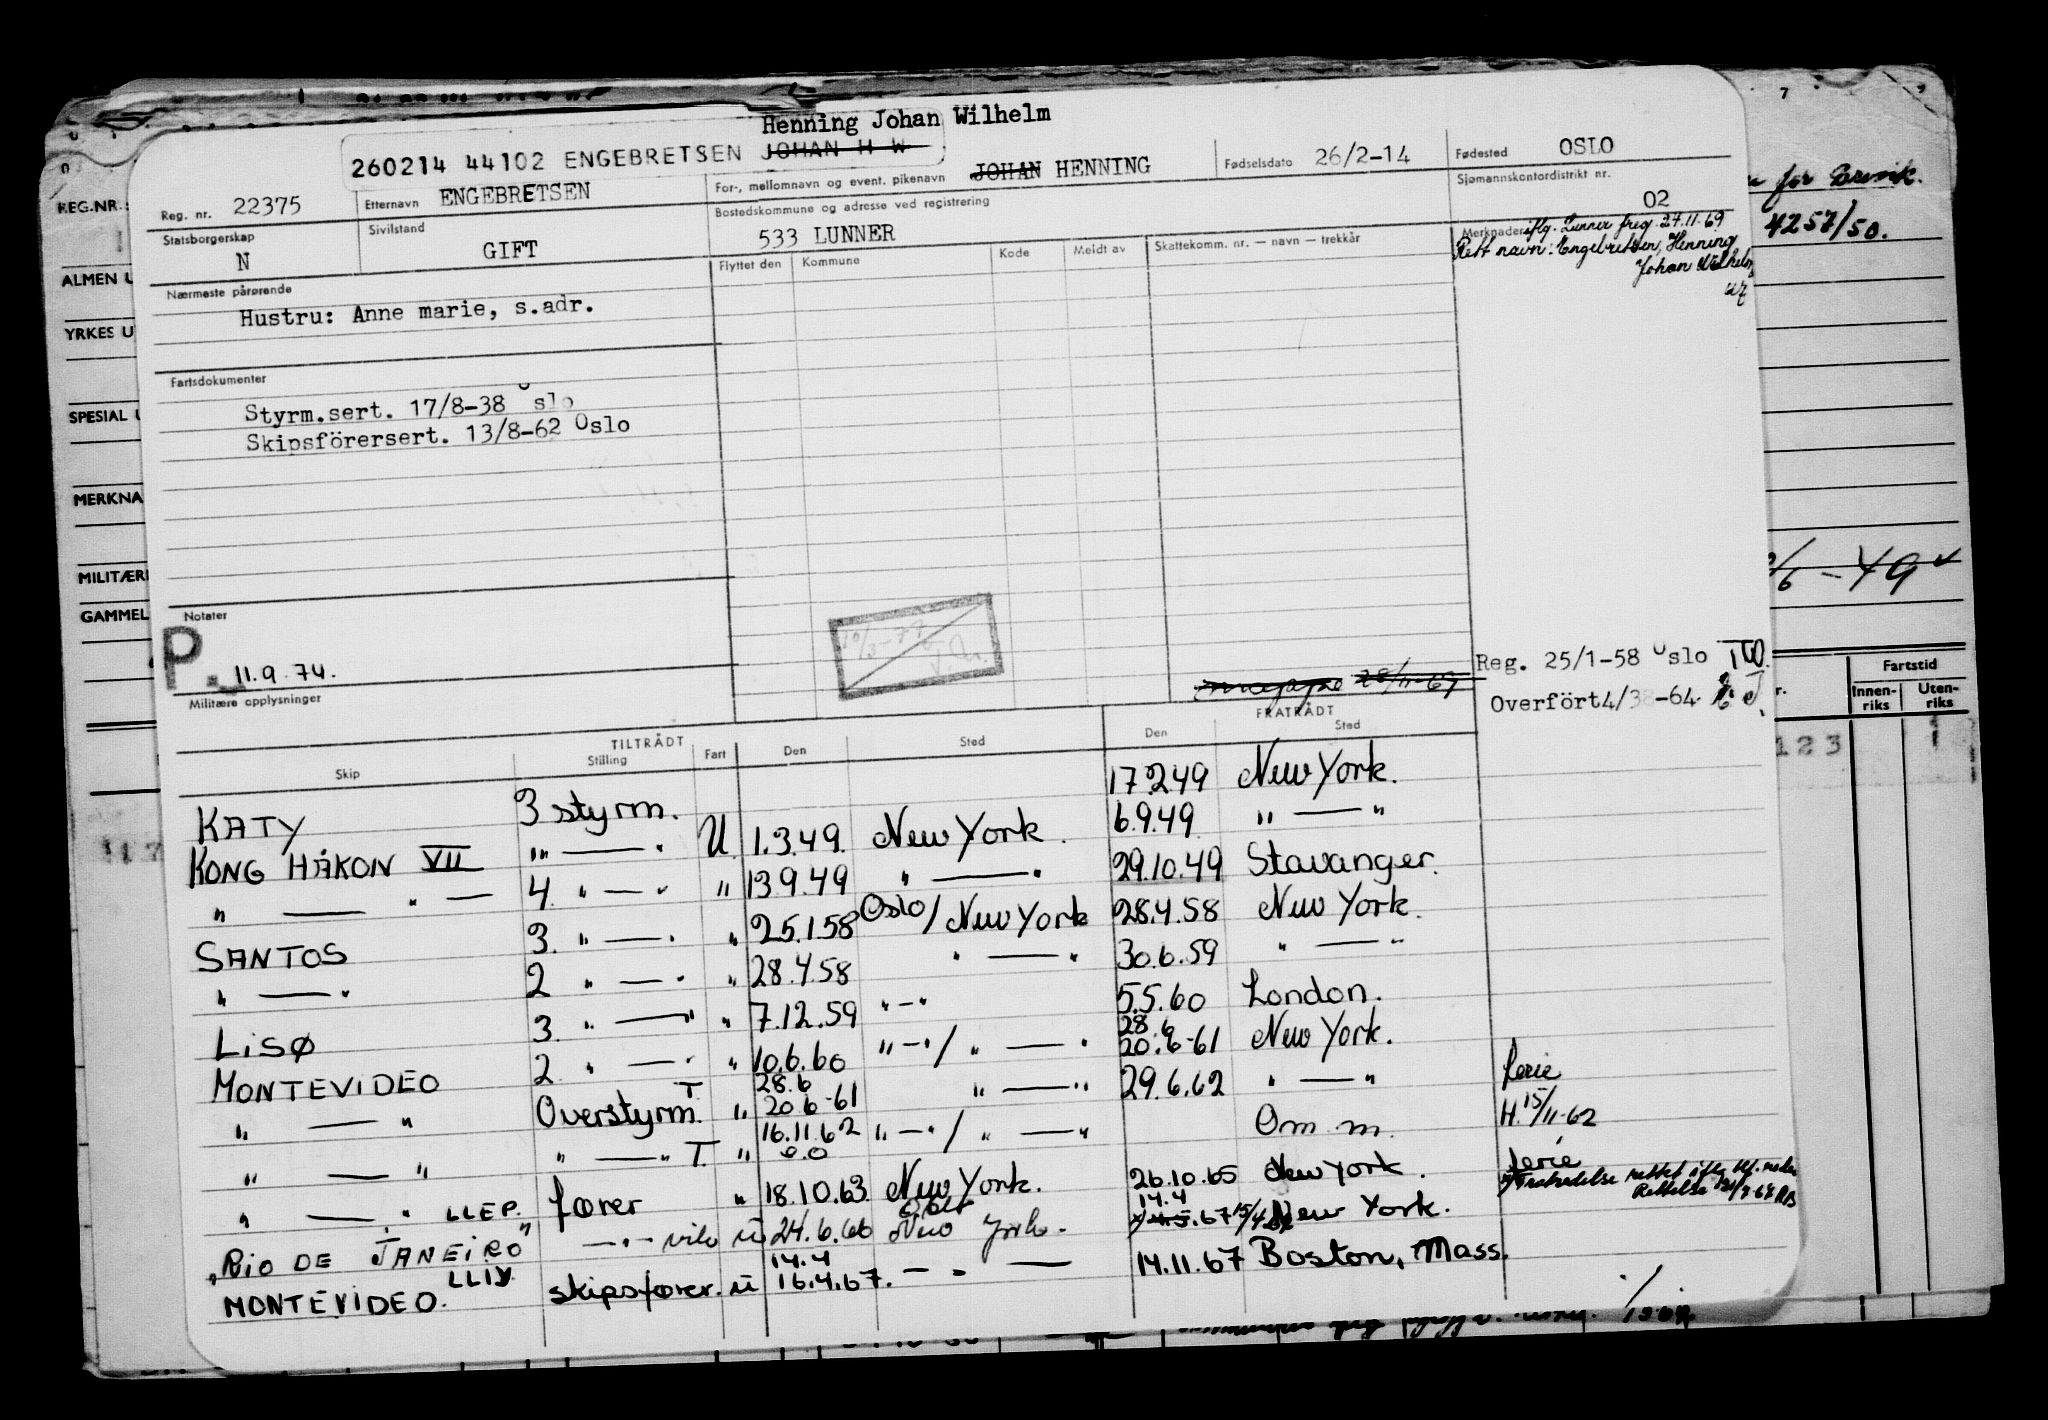 Henning Johan Wilhelm
260214 44102 ENGEBRETSEN JOHAN H W
Reg. nr. 22375 Etternavn ENGEBRETSEN For-, mellomnavn og event. pikenavn JOHAN HENNING Fødselsdato 26/2-14 Fødested OSLO
Statsborgerskap N Sivilstand GIFT Bostedskommune og adresse ved registrering 533 LUNNER Sjømannskontordistrikt nr. 02
Nærmeste pårørende Flyttet den Kommune Kode Meldt av Skattekomm. nr. — navn — trekkår Merknader iflg. Lunner freg. 24.11.69
Rett navn: Engebretsen, Henning
Johan Wilhelm
Hustru: Anne marie, s.adr.
Fartsdokumenter
Styrm.sert. 17/8-38 Oslo
Skipsförersert. 13/8-62 Oslo
Notater
P. 11.9.74.
Militære opplysninger
28/11-69
Reg. 25/1-58 Oslo
Overfört 4/ -64.
TILTRÅDT FRATRÅDT
Skip Stilling Fart Den Sted Den Sted
KATY 3 styrm. 17.2.49 New York.
KONG HÅKON VII " — " U 1.3.49. New York. 6.9.49 " — "
" — " — 4. " — " " 13.9.49 " — " 29.10.49 Stavanger.
SANTOS 3. " — " " 25.1.58 Oslo/New York 28.4.58 New York.
" — " 2 " — " " 28.4.58 " — " 30.6.59 " — "
LISØ 3. " — " " 7.12.59 " — " 5.5.60 London.
MONTEVIDEO 2. " — " " 10.6.60 " — " / " — " 28.6 20.6-61 New York.
" — " Overstyrm. T " 28.6 20.6-61 " — " 29.6.62 " — " ferie
" — " " — " T. " 16.11.62 " — " / " — " Om m. H. 15/11-62
" — " LLEP. fører " 18.10.63. New York. 26.10.65 New York. ferie
"RIO DE JANEIRO" — " — u 24.6.66 New York. 14.4 .67 15/4 New York. Fratredelse rettet iflg.
MONTEVIDEO. LLIY skipsfører. u 14.4 16.4.67. — " — 14.11.67 Boston, Mass.
REG.NR.
ALMEN U
YRKES U
SPESIAL U
MERKNA
MILITÆR
GAMMEL
for Brevik.
4257/50.
/6 -49
Fartstid
Innen-riks Uten-riks
123